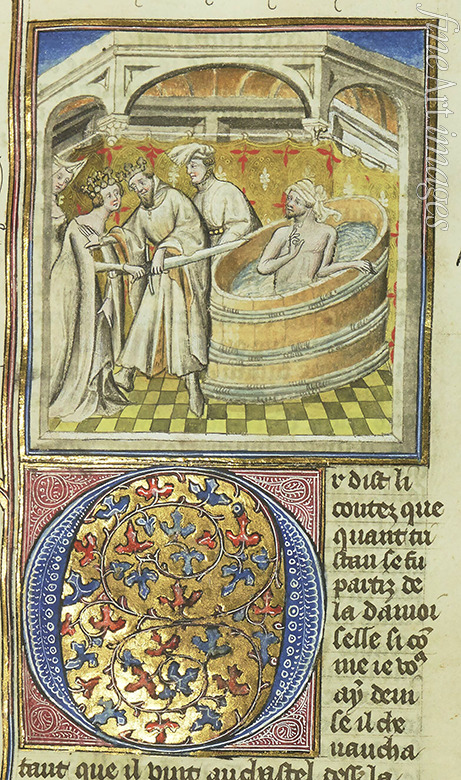 fine art images
Or dist li
contez que
quant tri
stan se fu
partiz de
la damoi
selle si cō
me ie voˢ
ay deui
se il che
uaucha
tant que il vint au chastel